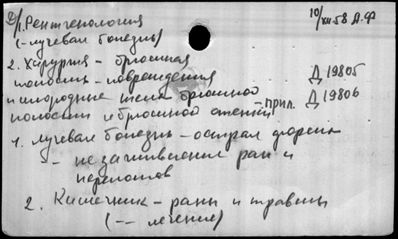 1. Рентгенология
10/XII 58 Д.Ф
(-лучевая болезнь)
2. Хирургия - брюшная
полость - повреждения
Д 19805
и инородные тела брюшной
- прил. Д 19806
полости и брюшной стенки
1. Лучевая болезнь - острая форма
- незаживление ран и
переломов
2. Кишечник - раны и травмы
(-- лечение)